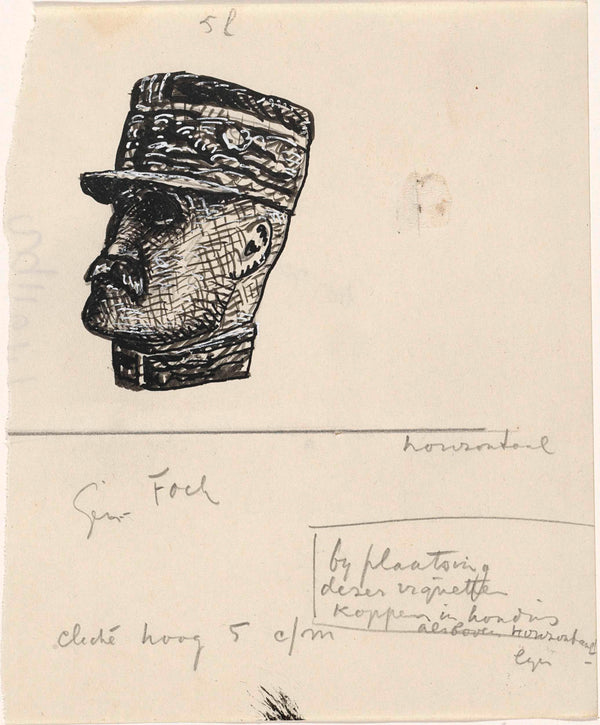 58
horizontaal
Gen. Foch
by plaatsing
dezer vignetten
koppen in houding
als boven horizontaal
cliché hoog 5 c/m